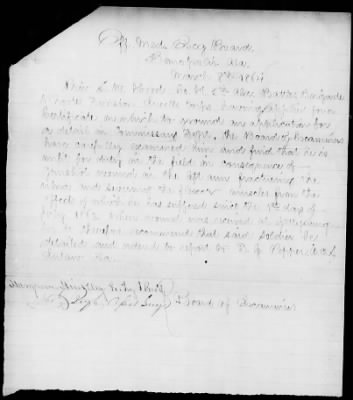 Off. Med. Exg. Board
Demopolis Ala.
March 8th 1864
Priv. L. M. Co. H. 5th Ala. Battles Brigade
Rodes Division Corps having applied for a
Certificate on which to ground an application for
a detail in Commissary Dept. The Board of Examiners
have carefully examined him and find that he is
unfit for duty in the field in consequence of
Gunshot wound in the left arm fracturing the
ulna and the flexor muscles from the
effects of which he has suffered since the 1st day of
July 1863 when wound was received at Gettysburg
therefore recommends that said soldier be
detailed and ordered to report to
Ala.
Surg.
Board of Examiners